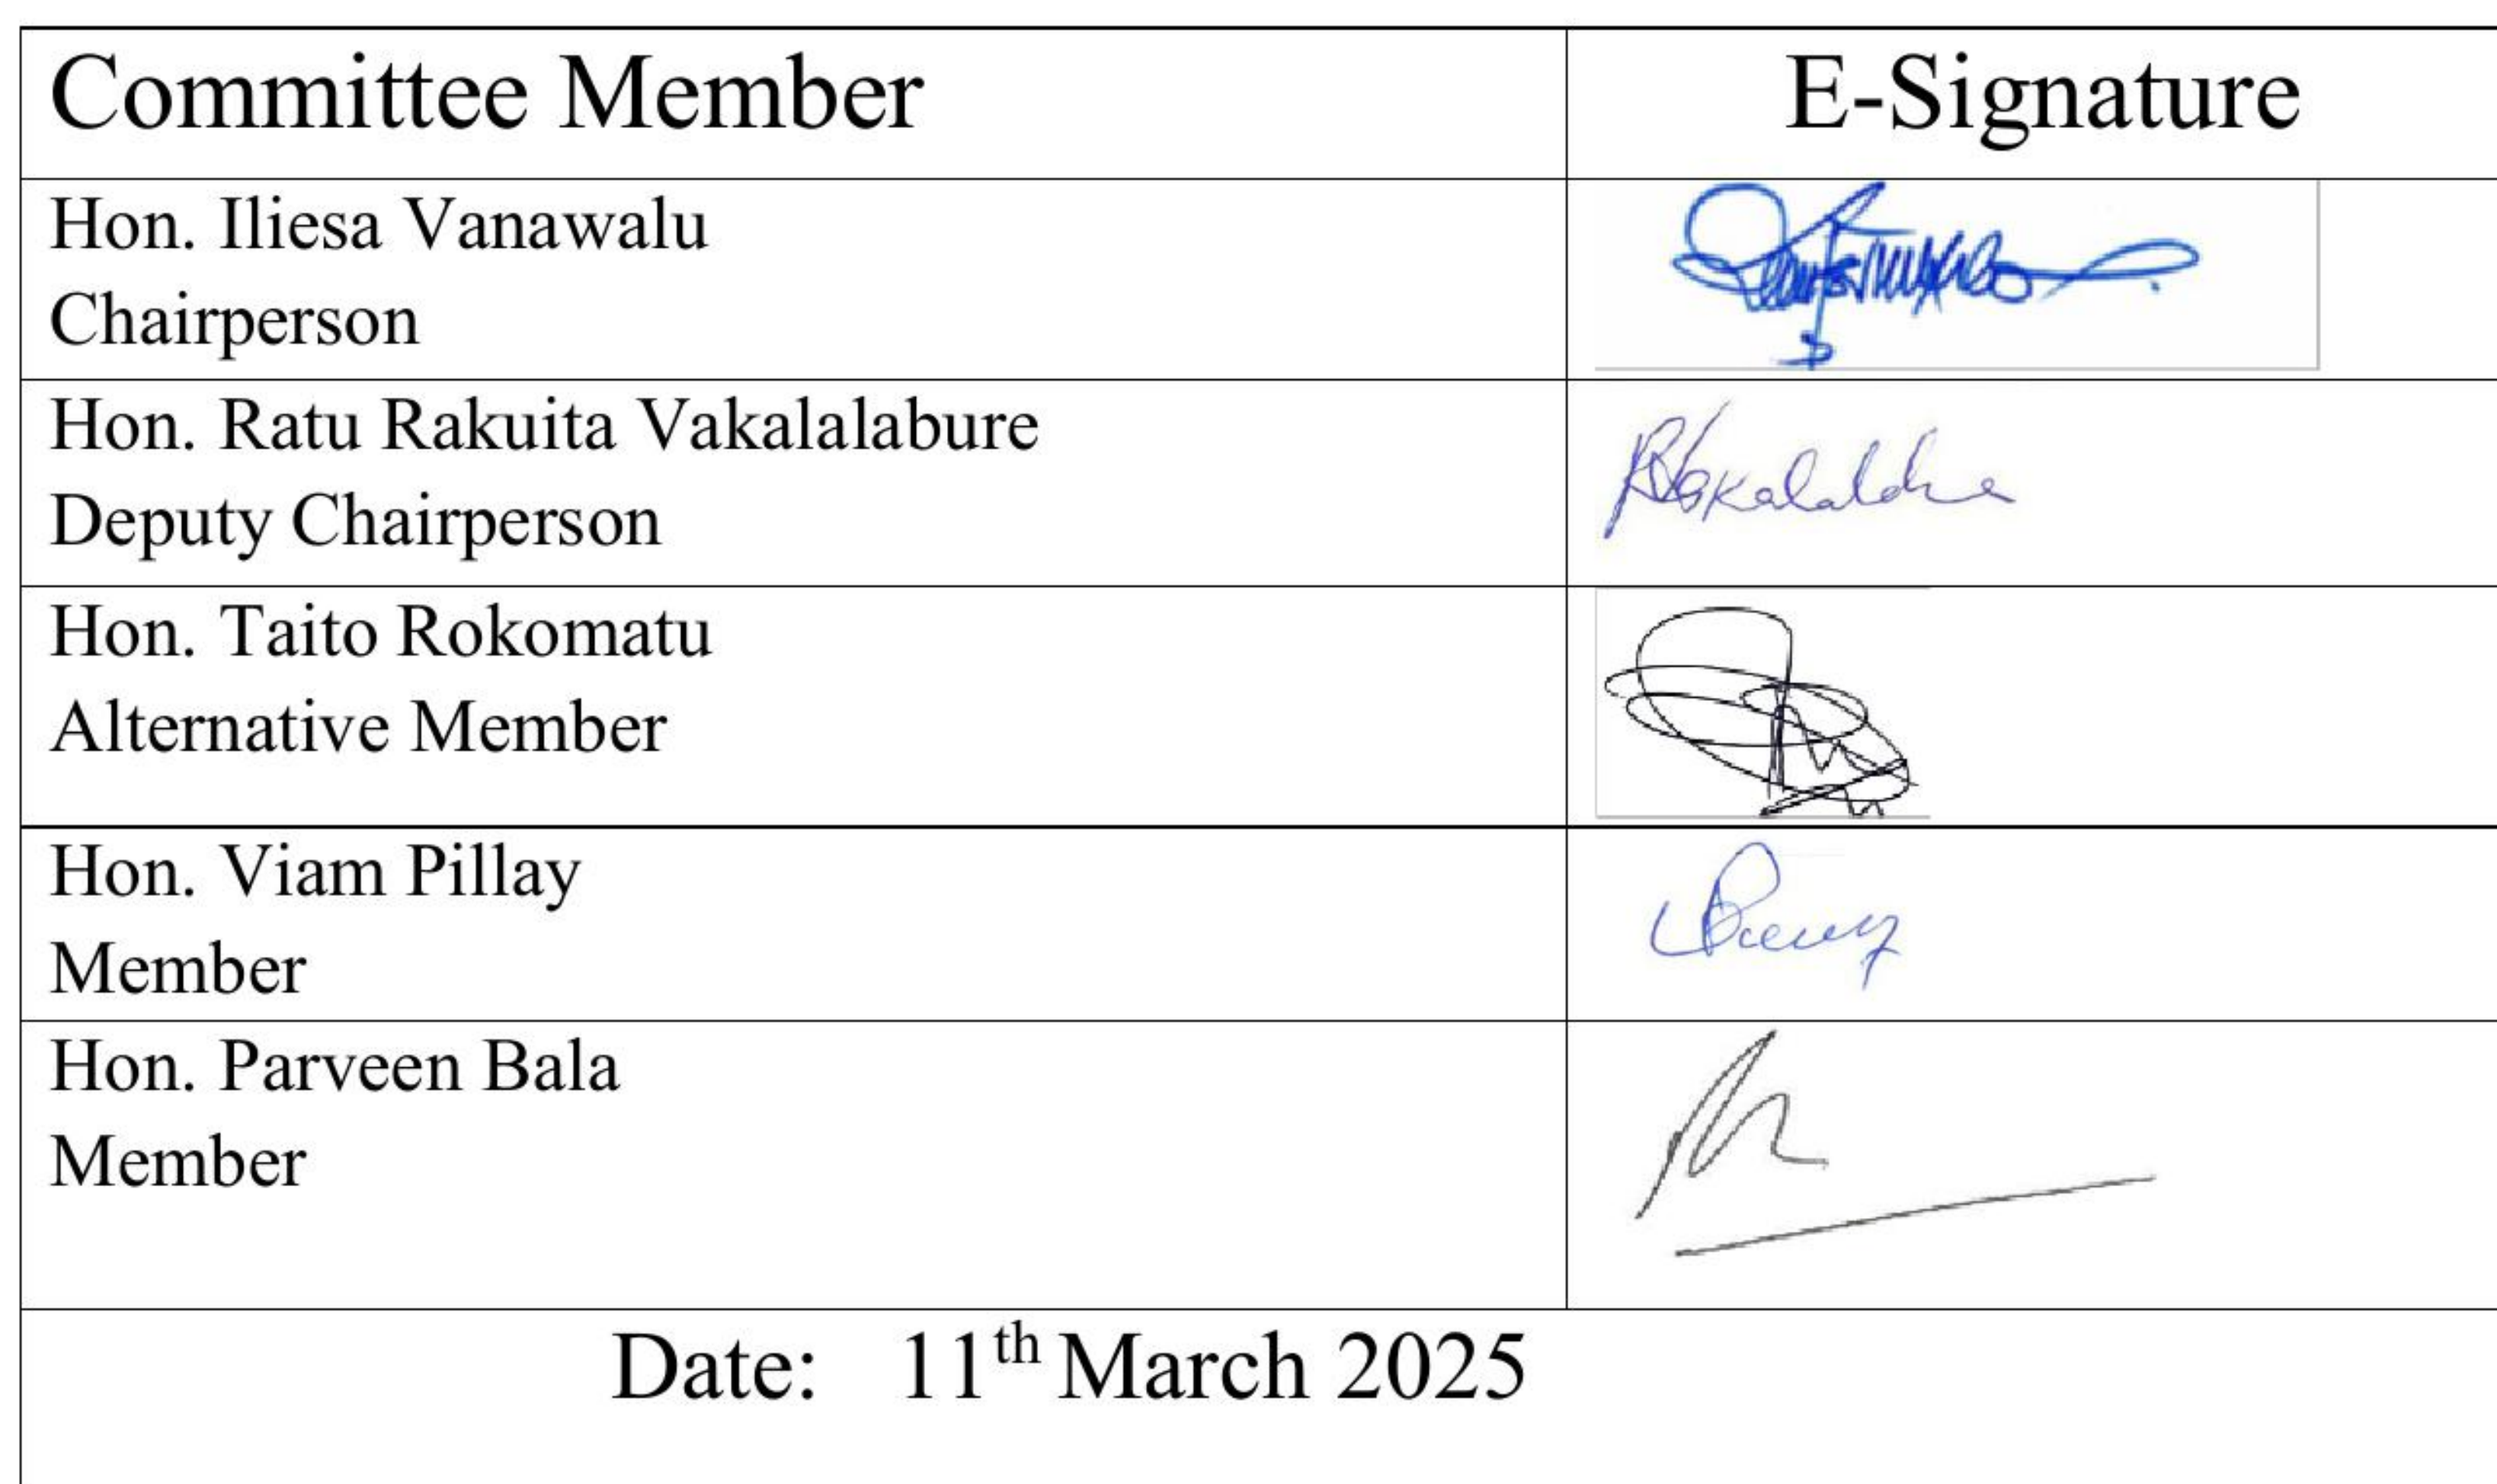 Committee Member E-Signature
Hon. Iliesa Vanawalu
Chairperson
Hon. Ratu Rakuita Vakalalabure
Deputy Chairperson
Hon. Taito Rokomatu
Alternative Member
Hon. Viam Pillay
Member
Hon. Parveen Bala
Member
Date: 11th March 2025